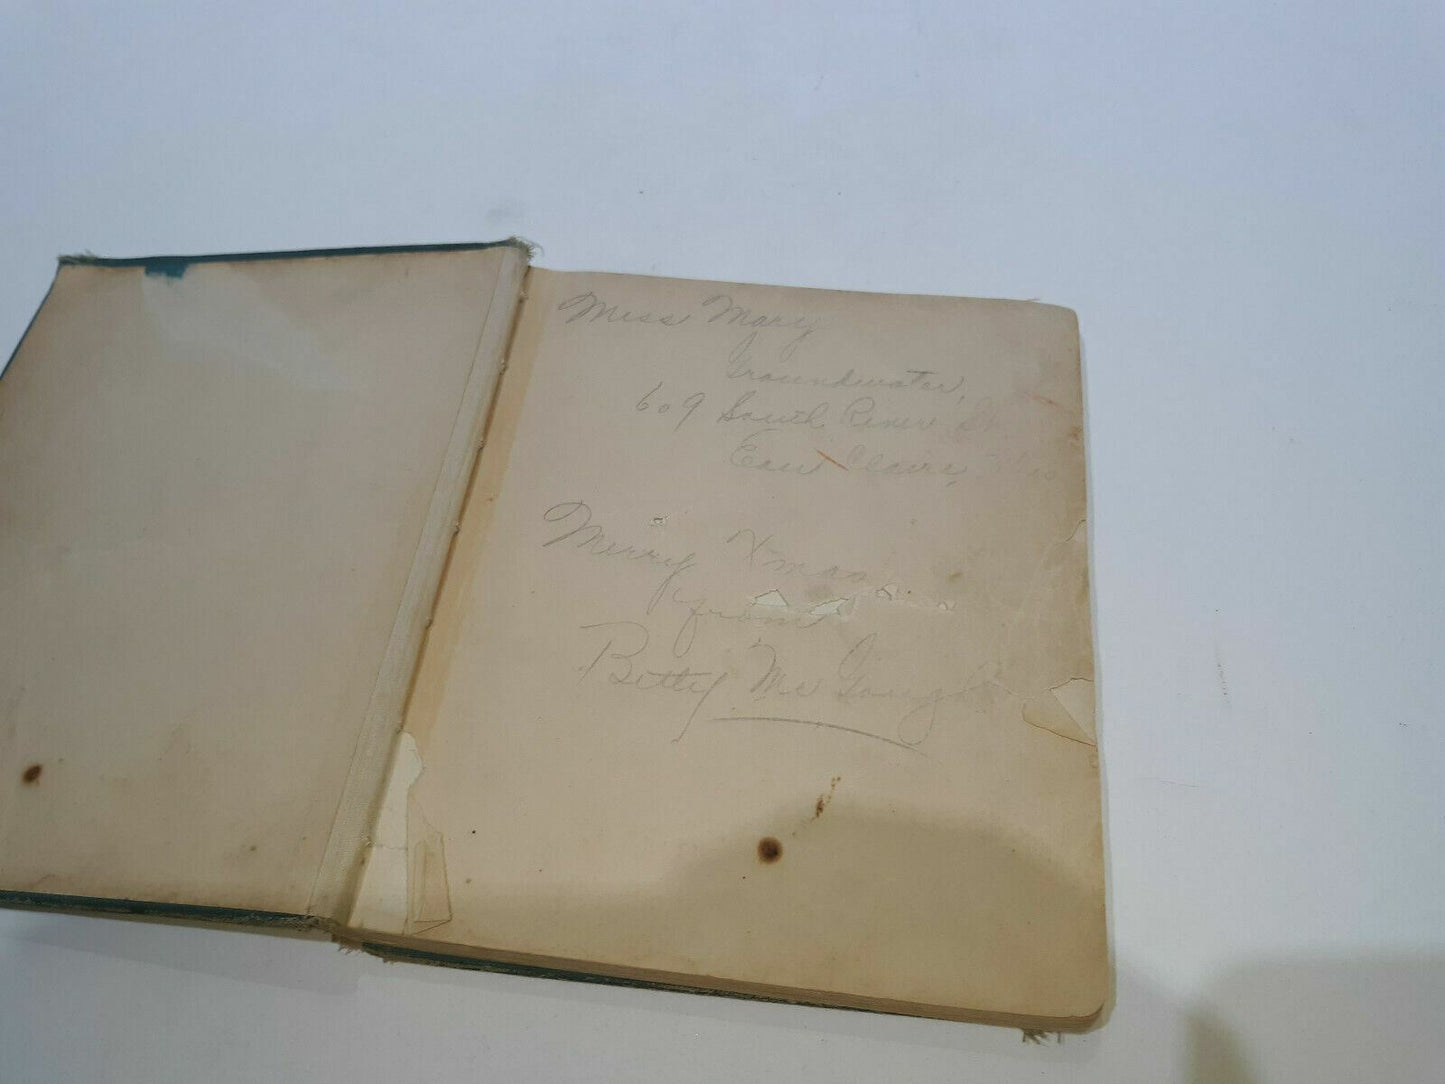 Miss Mary
Groundwater,
609 South River St.
Eau Claire, Wis
Merry Xmas
from
Betty Mc Gough